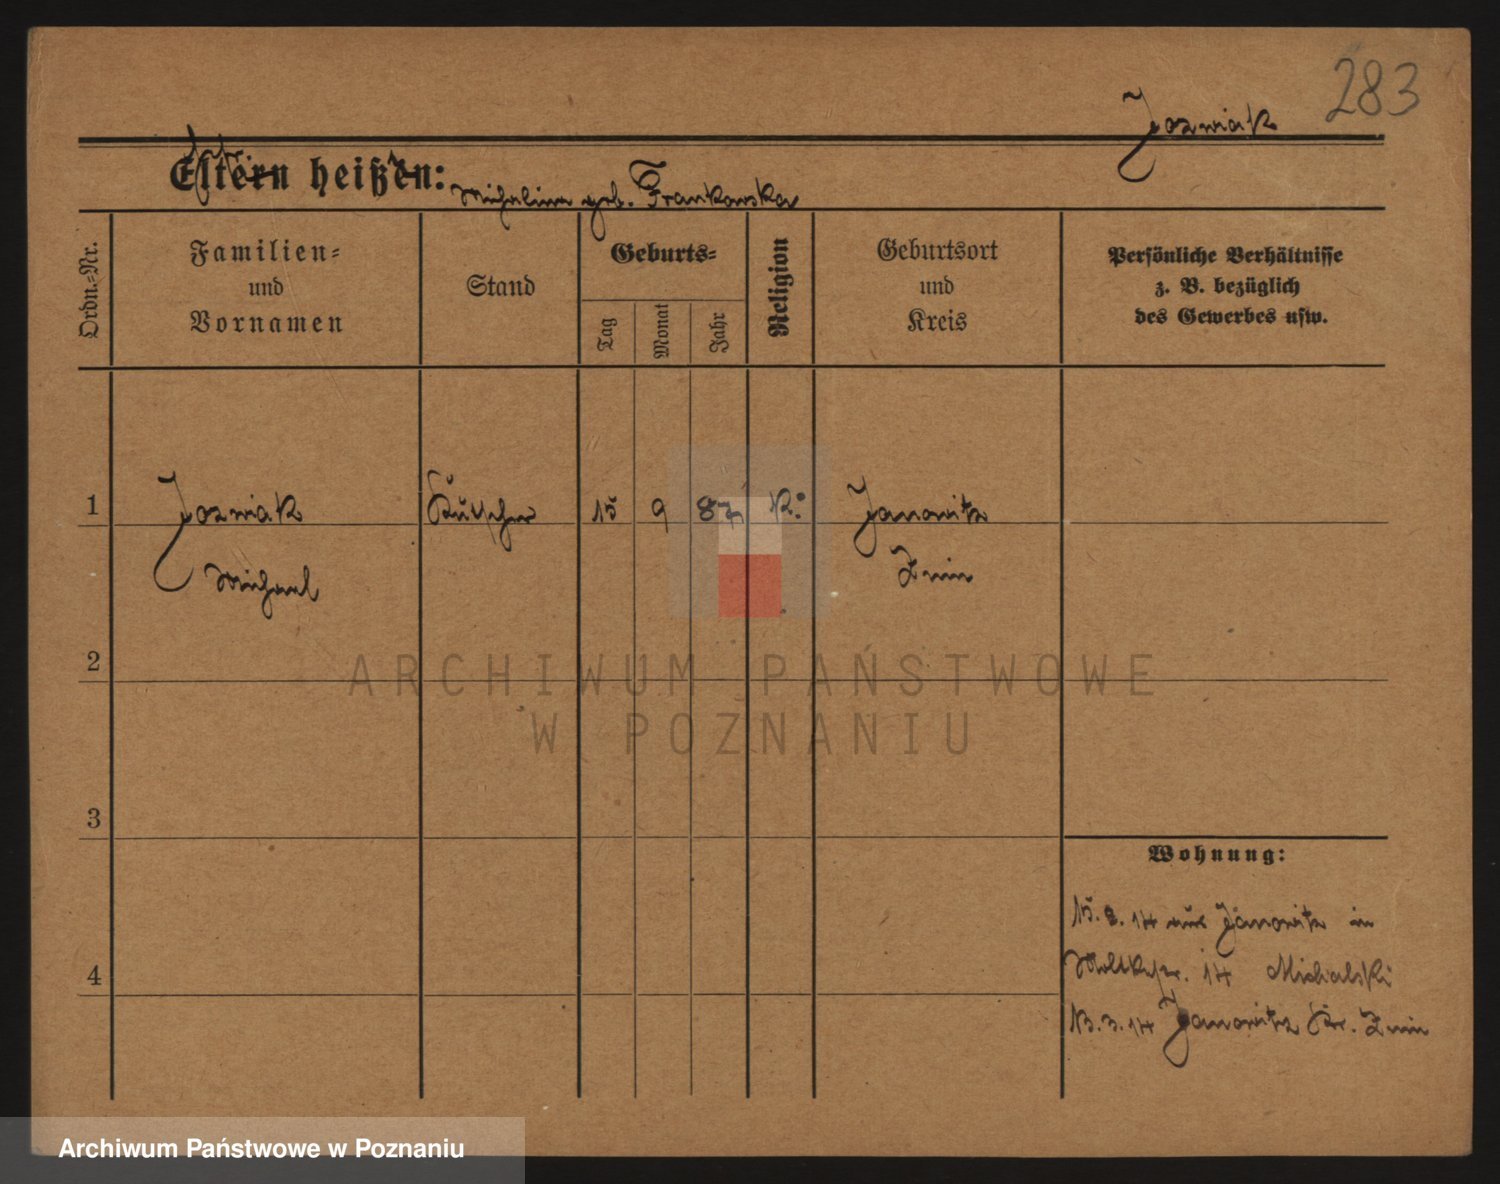 283
Jozwiak
Eltern heißen:
Michalina geb. Frankowska
Ordn.-Nr.
Familien-
und
Vornamen
Stand
Geburts-
Tag
Monat
Jahr
Religion
Geburtsort
und
Kreis
Persönliche Verhältnisse
z. B. bezüglich
des Gewerbes usw.
1
Jozwiak
Kutscher
15
9
87
K.
Janowitz
Michael
Znin
2
ARCHIWUM PAŃSTWOWE
W POZNANIU
3
Wohnung:
15. 2. 14 aus Janowitz in
4
Moltkestr. 14 Michalski
13. 3. 14 Janowitz Kr. Znin
Archiwum Państwowe w Poznaniu